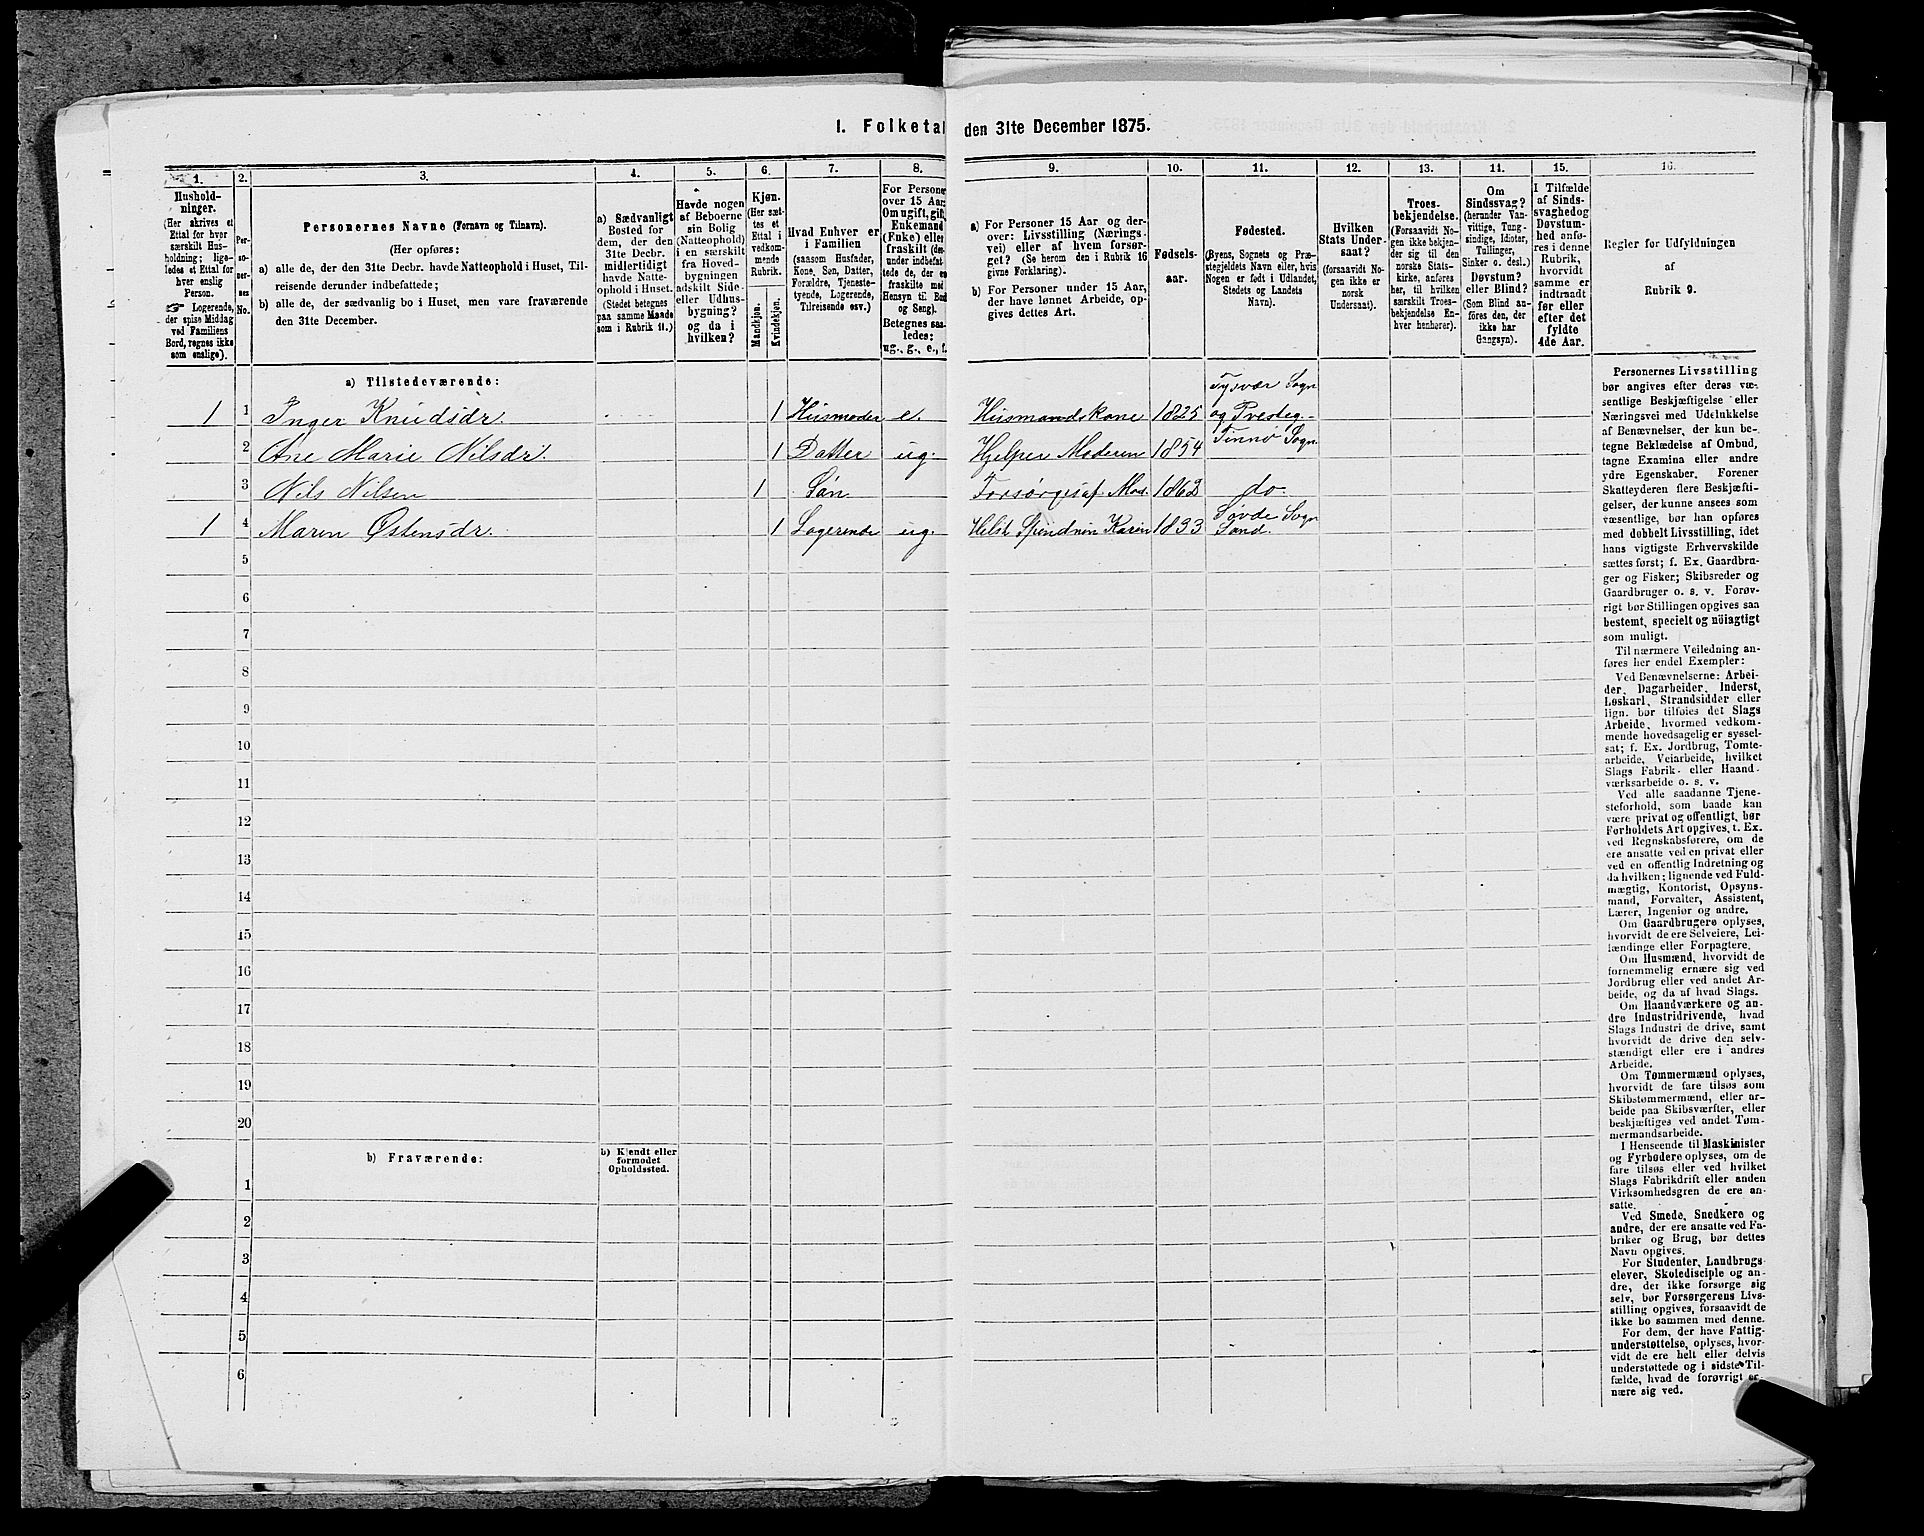 1. Folketal den 31te December 1875.
1. 2. 3. 4. 5. 6. 7. 8. 9. 10. 11. 12. 13. 11. 15. 16.
Hushold-
ninger.
(Her skrives et
Ettal for hver
særskilt Hus-
holdning; lige-
ledes et Ettal for
hver enslig
Person.
☞ Logerende,
der spise Middag
ved Familiens
Bord, regnes ikke
som enslige).
Per-
so-
ner-
nes
No.
Personernes Navne (Fornavn og Tilnavn).
(Her opføres:
a) alle de, der den 31te Decbr. havde Natteophold i Huset, Til-
reisende derunder indbefattede;
b) alle de, der sædvanlig bo i Huset, men vare fraværende
den 31te December.
a) Sædvanligt
Bosted for
dem, der den
31te Decbr.
midlertidigt
havde Natte-
ophold i Huset.
(Stedet betegnes
paa samme Maade
som i Rubrik 11.)
Havde nogen
af Beboerne
sin Bolig
(Natteophold)
i en særskilt
fra Hoved-
bygningen
adskilt Side-
eller Udhus-
bygning?
og da i
hvilken?
Kjøn.
(Her sæt-
tes et
Ettal i
vedkom-
mende
Rubrik.
Mandkjøn.
Kvindekjøn.
Hvad Enhver er
i Familien
(saasom Husfader,
Kone, Søn, Datter,
Forældre, Tjeneste-
tyende, Logerende,
Tilreisende osv.)
For Persone
over 15 Aar:
Om ugift, gift,
Enkemand
(Enke) eller
fraskilt (de-
under indbefat-
tede de, der e
fraskilte med
Hensyn til Bo
og Seng).
Betegnes saa-
ledes:
ug., g., e., f.
a) For Personer 15 Aar og der-
over: Livsstilling (Nærings-
vei) eller af hvem forsør-
get? (Se herom den i Rubrik 16
givne Forklaring).
b) For Personer under 15 Aar,
der have lønnet Arbeide, op-
gives dettes Art.
Fødsels-
aar.
Fødested.
(Byens, Sognets og Præ-
stegjeldets Navn eller, hvis
Nogen er født i Udlandet,
Stedets og Landets
Navn).
Hvilken
Stats Under-
saat?
(forsaavidt No-
gen ikke er
norsk
Undersaat).
Troes-
bekjendelse.
(Forsaavidt No-
gen ikke bekjen-
der sig til den
norske Stats-
kirke, anføres
her, til hvilken
særskilt Troes-
bekjendelse En-
hver henhører).
Om
Sindssvag?
(herunder Van-
vittige, Tung-
sindige, Idioter,
Tullinger,
Sinker o. desl.)
Døvstum?
eller Blind?
(Som Blind an-
føres den, der
ikke har
Gangsyn).
I Tilfælde
af Sinds-
svaghed og
Døvstum-
hed anfø-
res i denne
Rubrik,
hvorvidt
samme er
indtraadt
før eller
efter det
fyldte
4de Aar.
Regler for Udfyldningen
af
Rubrik 9.
a) Tilstedeværende:
Tysvær Sogn
1 1 Inger Knudsdr. 1 Husmoder e. Husmandskone 1825 og Presteg.
2 Ane Marie Nilsdr. 1 Datter ug. Hjelper Moderen 1854 Finnø Sogn
3 Nils Nilsen 1 Søn Forsørges af Mod. 1862 do.
Søvde Sogn
1 4 Maren Østensdr. 1 Logerende ug. 1833 Sand.
5
6
7
8
9
10
11
12
13
14
15
16
17
18
19
20
b) Fraværende:
b) Kjendt eller
formodet
Opholdssted.
1
2
3
4
5
6
Personernes Livsstilling
bør angives efter deres væ-
sentlige Beskjæftigelse eller
Næringsvei med Udelukkelse
af Benævnelser, der kun be-
tegne Beklædelse af Ombud,
tagne Examina eller andre
ydre Egenskaber. Forener
Skatteyderen flere Beskjæfti-
gelser, der kunne ansees som
væsentlige, bør han opføres
med dobbelt Livsstilling, idet
hans vigtigste Erhvervskilde
sættes først; f. Ex. Gaardbru-
ger og Fisker; Skibsreder og
Gaardbruger o. s. v. Forøv-
rigt bør Stillingen opgives saa
bestemt, specielt og nöiagtigt
som muligt.
Til nærmere Veiledning an-
føres her endel Exempler:
Ved Benævnelserne: Arbei-
der, Dagarbeider, Inderst,
Løskarl, Strandsidder eller
lign. bør tilføies det Slags
Arbeide, hvormed vedkom-
mende hovedsagelig er syssel-
sat; f. Ex. Jordbrug, Tomte-
arbeide, Veiarbeide, hvilket
Slags Fabrik- eller Haand-
værksarbeide o. s. v.
Ved alle saadanne Tjene-
steforhold, som baade kan
være privat og offentligt, bør
Forholdets Art opgives, t. Ex.
ved Regnskabsførere, om de
ere ansatte ved en privat eller
ved en offentlig Indretning og
da hvilken; lignende ved Fuld-
mægtig, Kontorist, Opsyns-
mand, Forvalter, Assistent,
Lærer, Ingeniør og andre.
Om Gaardbrugere oplyses,
hvorvidt de ere Selveiere, Lei-
lændinge eller Forpagtere.
Om Husmænd, hvorvidt de
fornemmelig ernære sig ved
Jordbrug eller ved andet Ar-
beide, og da af hvad Slags.
Om Haandværkere og an-
dre Industridrivende, hvad
Slags Industri de drive, samt
hvorvidt de drive den selv-
stændigt eller ere i andres
Arbeide.
Om Tømmermænd oplyses,
hvorvidt de fare tilsøs som
Skibstømmermænd, eller ar-
beide paa Skibsværfter, eller
beskjæftiges ved andet Tøm-
mermandsarbeide.
I Henseende til Maskinister
og Fyrbødere oplyses, om de
fare tilsøs eller ved hvilket
Slags Fabrikdrift eller anden
Virksomhedsgren de ere an-
satte.
Ved Smede, Snedkere og
andre, der ere ansatte ved Fa-
briker og Brug, bør dettes
Navn opgives.
For Studenter, Landbrugs-
elever, Skoledisciple og an-
dre, der ikke forsørge sig
selv, bør Forsørgerens Livs-
stilling opgives, forsaavidt de
ikke bo sammen med denne.
For dem, der have Fattig-
understøttelse, oplyses, hvor-
vidt de ere helt eller delvis
understøttede og i sidste Til-
fælde, hvad de forøvrigt er-
nære sig ved.